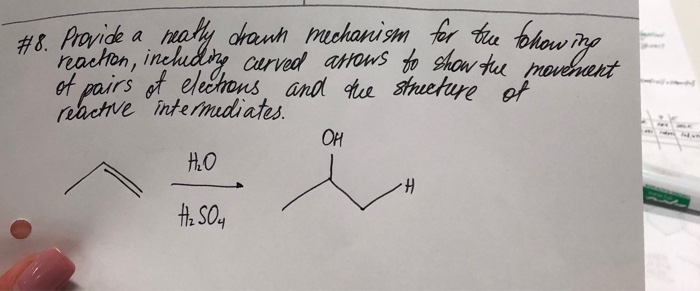 #8. Provide a neatly drawn mechanism for the following
reaction, including curved arrows to show the movement
of pairs of electrons and the structure of
reactive intermediates.
OH
H₂O
H
H₂SO₄